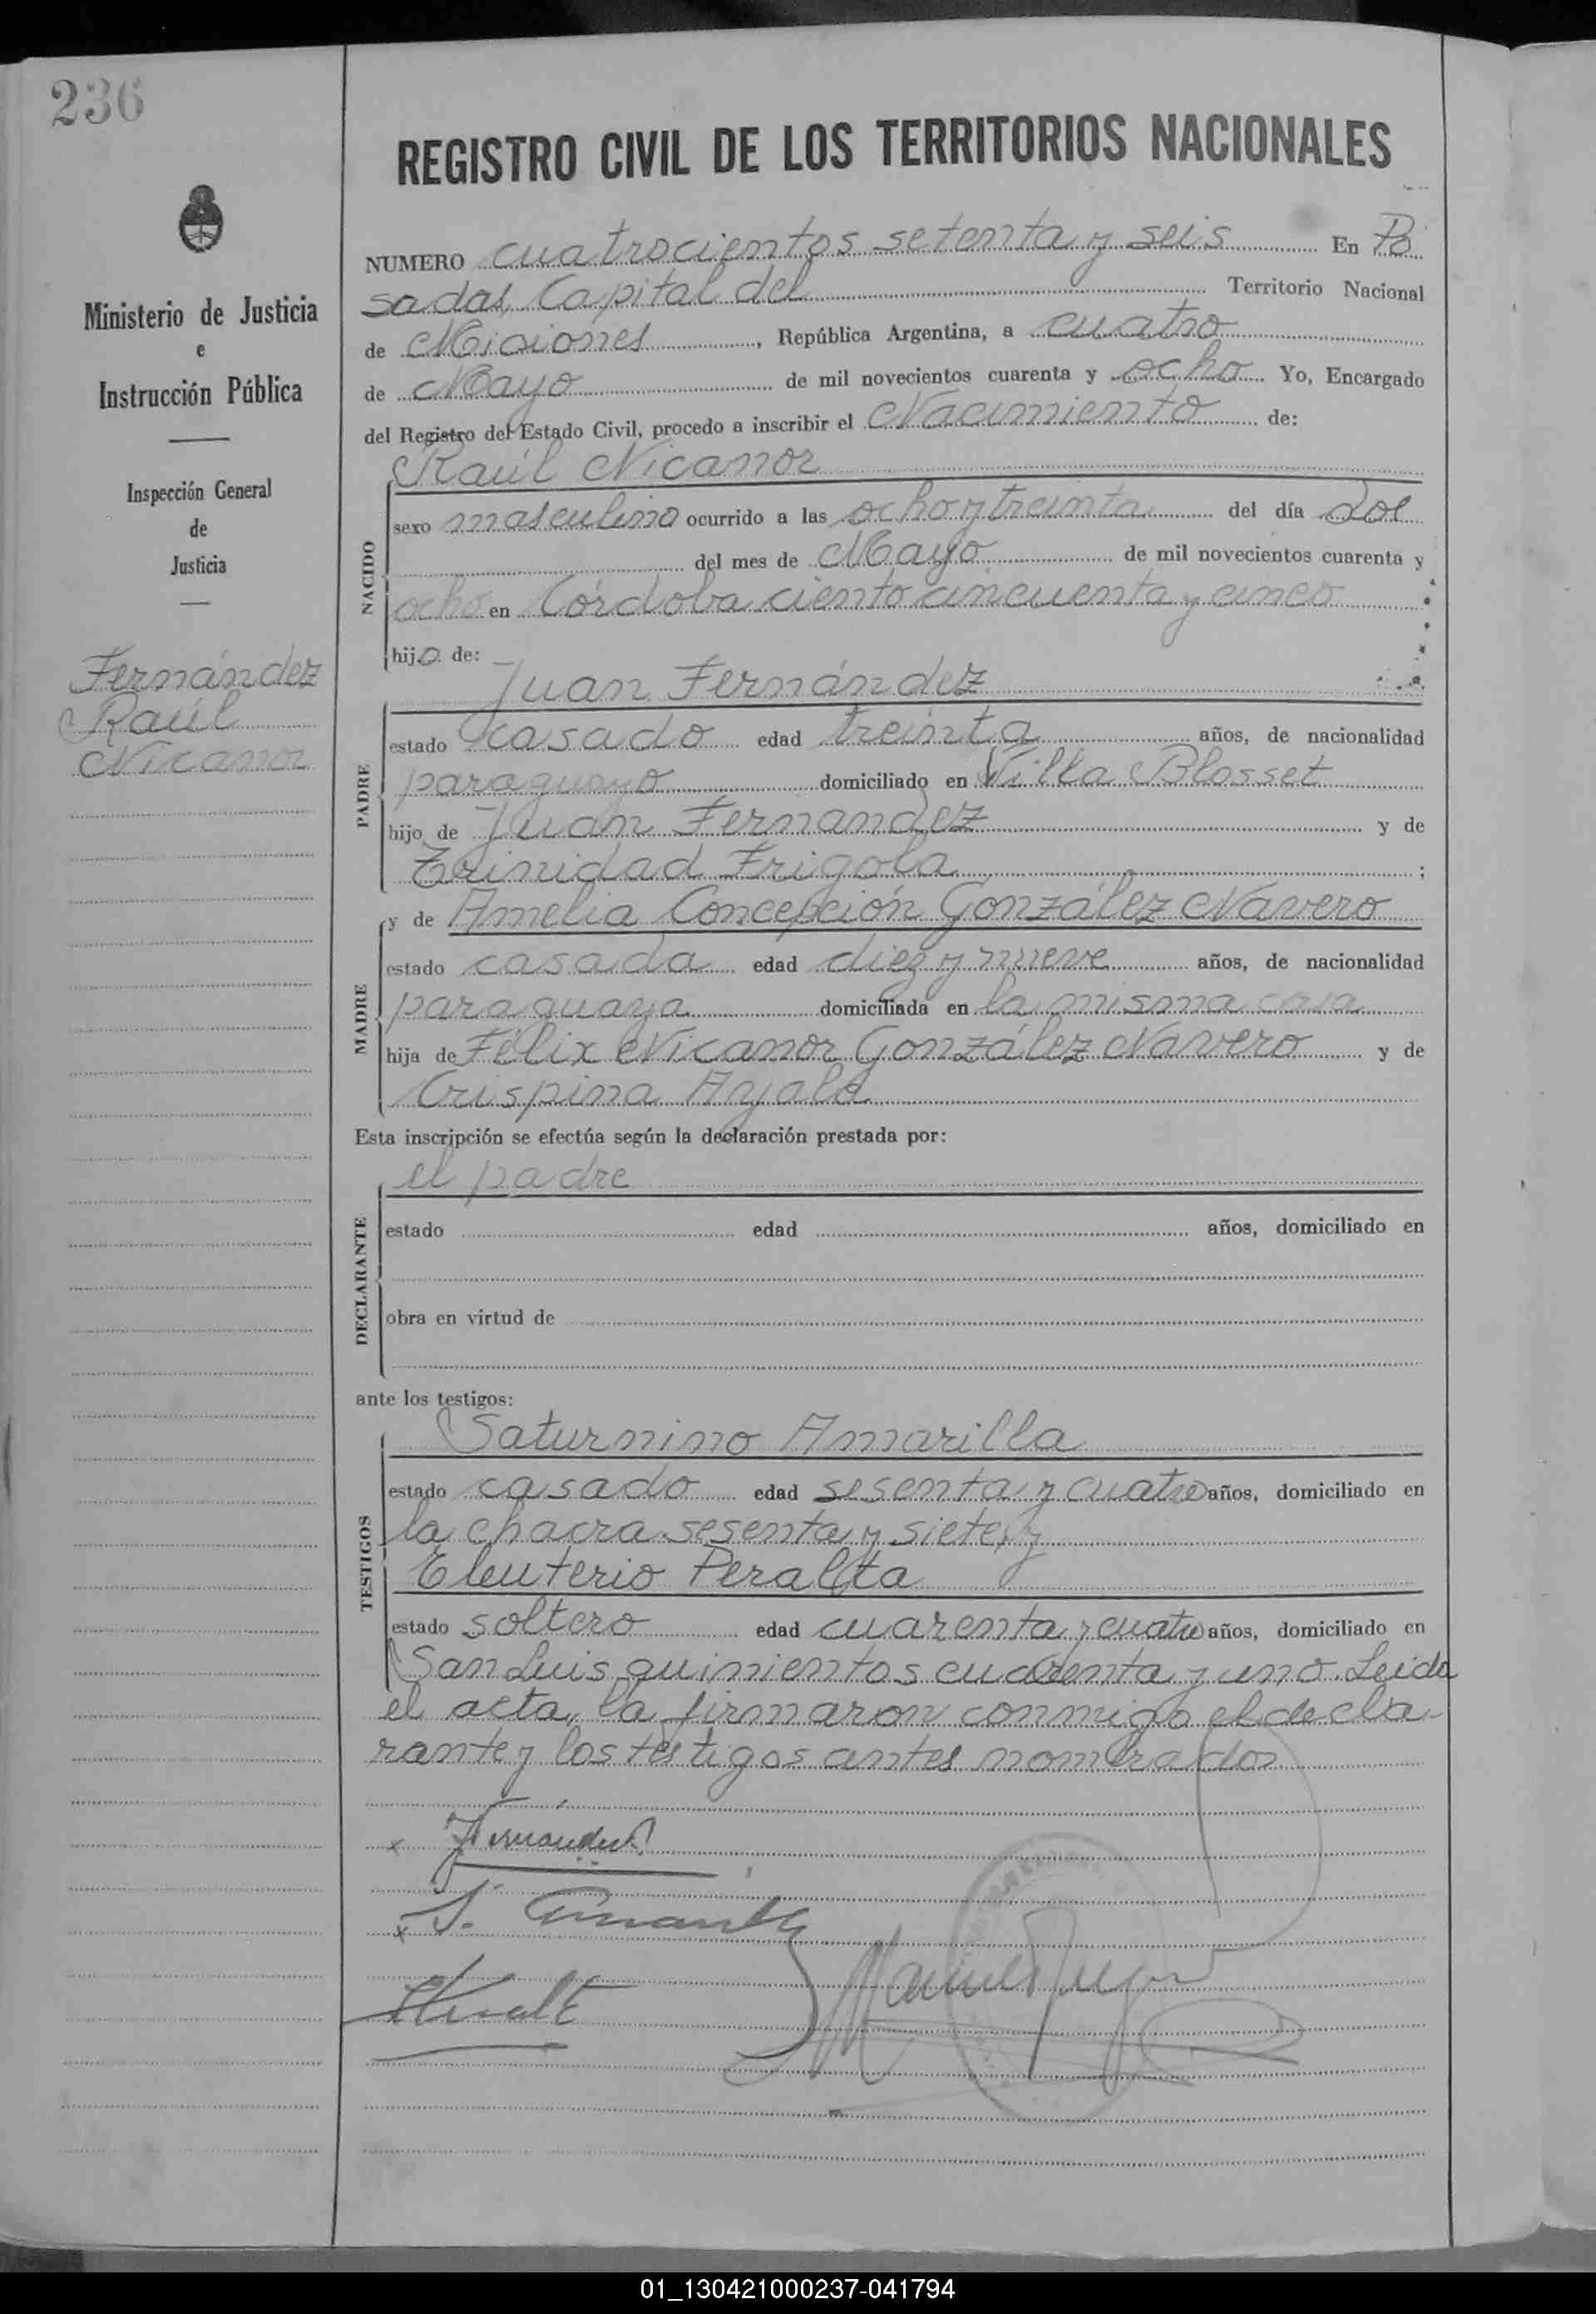 236
REGISTRO CIVIL DE LOS TERRITORIOS NACIONALES
Ministerio de Justicia
e
Instrucción Pública
Inspección General
de
Justicia
Fernández
Raúl
Nicanor
NUMERO cuatrocientos setenta y seis En Po
sadas, Capital del Territorio Nacional
de Misiones, República Argentina, a cuatro
de Mayo de mil novecientos cuarenta y ocho Yo, Encargado
del Registro del Estado Civil, procedo a inscribir el Nacimiento de:
Raúl Nicanor
NACIDO
sexo masculino ocurrido a las ocho y treinta del día dos
del mes de Mayo de mil novecientos cuarenta y
ocho en Córdoba ciento cincuenta y cinco
hijo de:
Juan Fernández
PADRE
estado casado edad treinta años, de nacionalidad
paraguayo domiciliado en Villa Blosset
hijo de Juan Fernandez y de
Trinidad Frigola ;
y de Amelia Concepción González Navero
MADRE
estado casada edad diez y nueve años, de nacionalidad
paraguaya domiciliada en la misma casa
hija de Félix Nicanor González Navero y de
Crispina Ayala
Esta inscripción se efectúa según la declaración prestada por:
el padre
DECLARANTE
estado edad años, domiciliado en
obra en virtud de
ante los testigos:
Saturnino Amarilla
TESTIGOS
estado casado edad sesenta y cuatro años, domiciliado en
la chacra sesenta y siete, y
Eleuterio Peralta
estado soltero edad cuarenta y cuatro años, domiciliado en
San Luis quinientos cuarenta y uno. Leida
el acta, la firmaron conmigo el decla-
rante y los testigos antes nombrados
x Fernández
x S. Amarilla
01_130421000237-041794